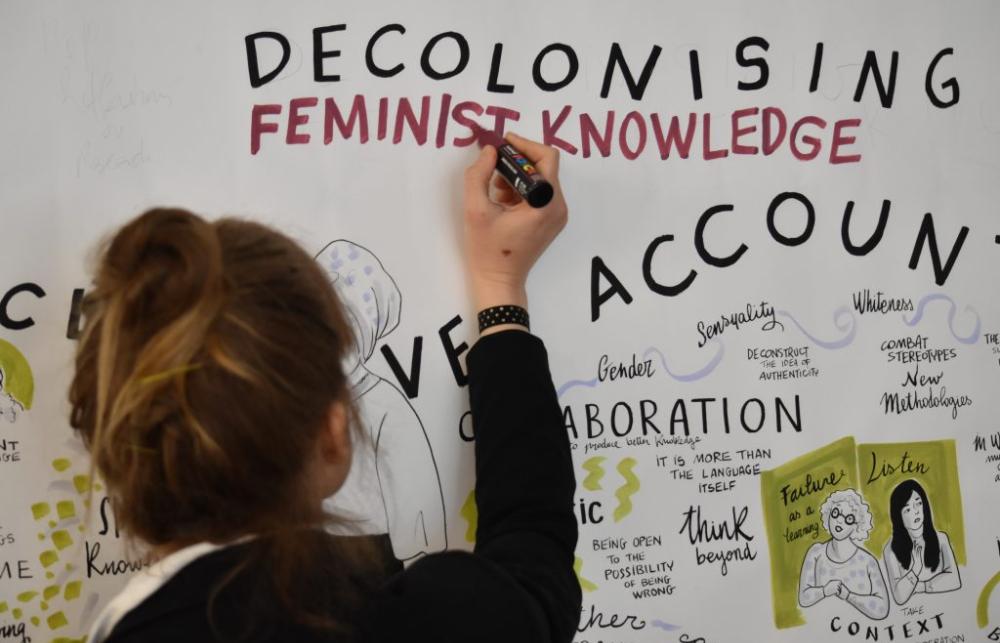 DECOLONISING
FEMINIST KNOWLEDGE
ACCOUN
VE
Sensuality
Whiteness
Gender
DECONSTRUCT
THE IDEA OF
AUTHENTICITY
COMBAT
STEREOTYPES
New
Methodologies
ABORATION
to produce better knowledge
IT IS MORE THAN
THE LANGUAGE
ITSELF
think
beyond
BEING OPEN
TO THE
POSSIBILITY
OF BEING
WRONG
Failure
as a
learning
Listen
TAKE
CONTEXT
Know